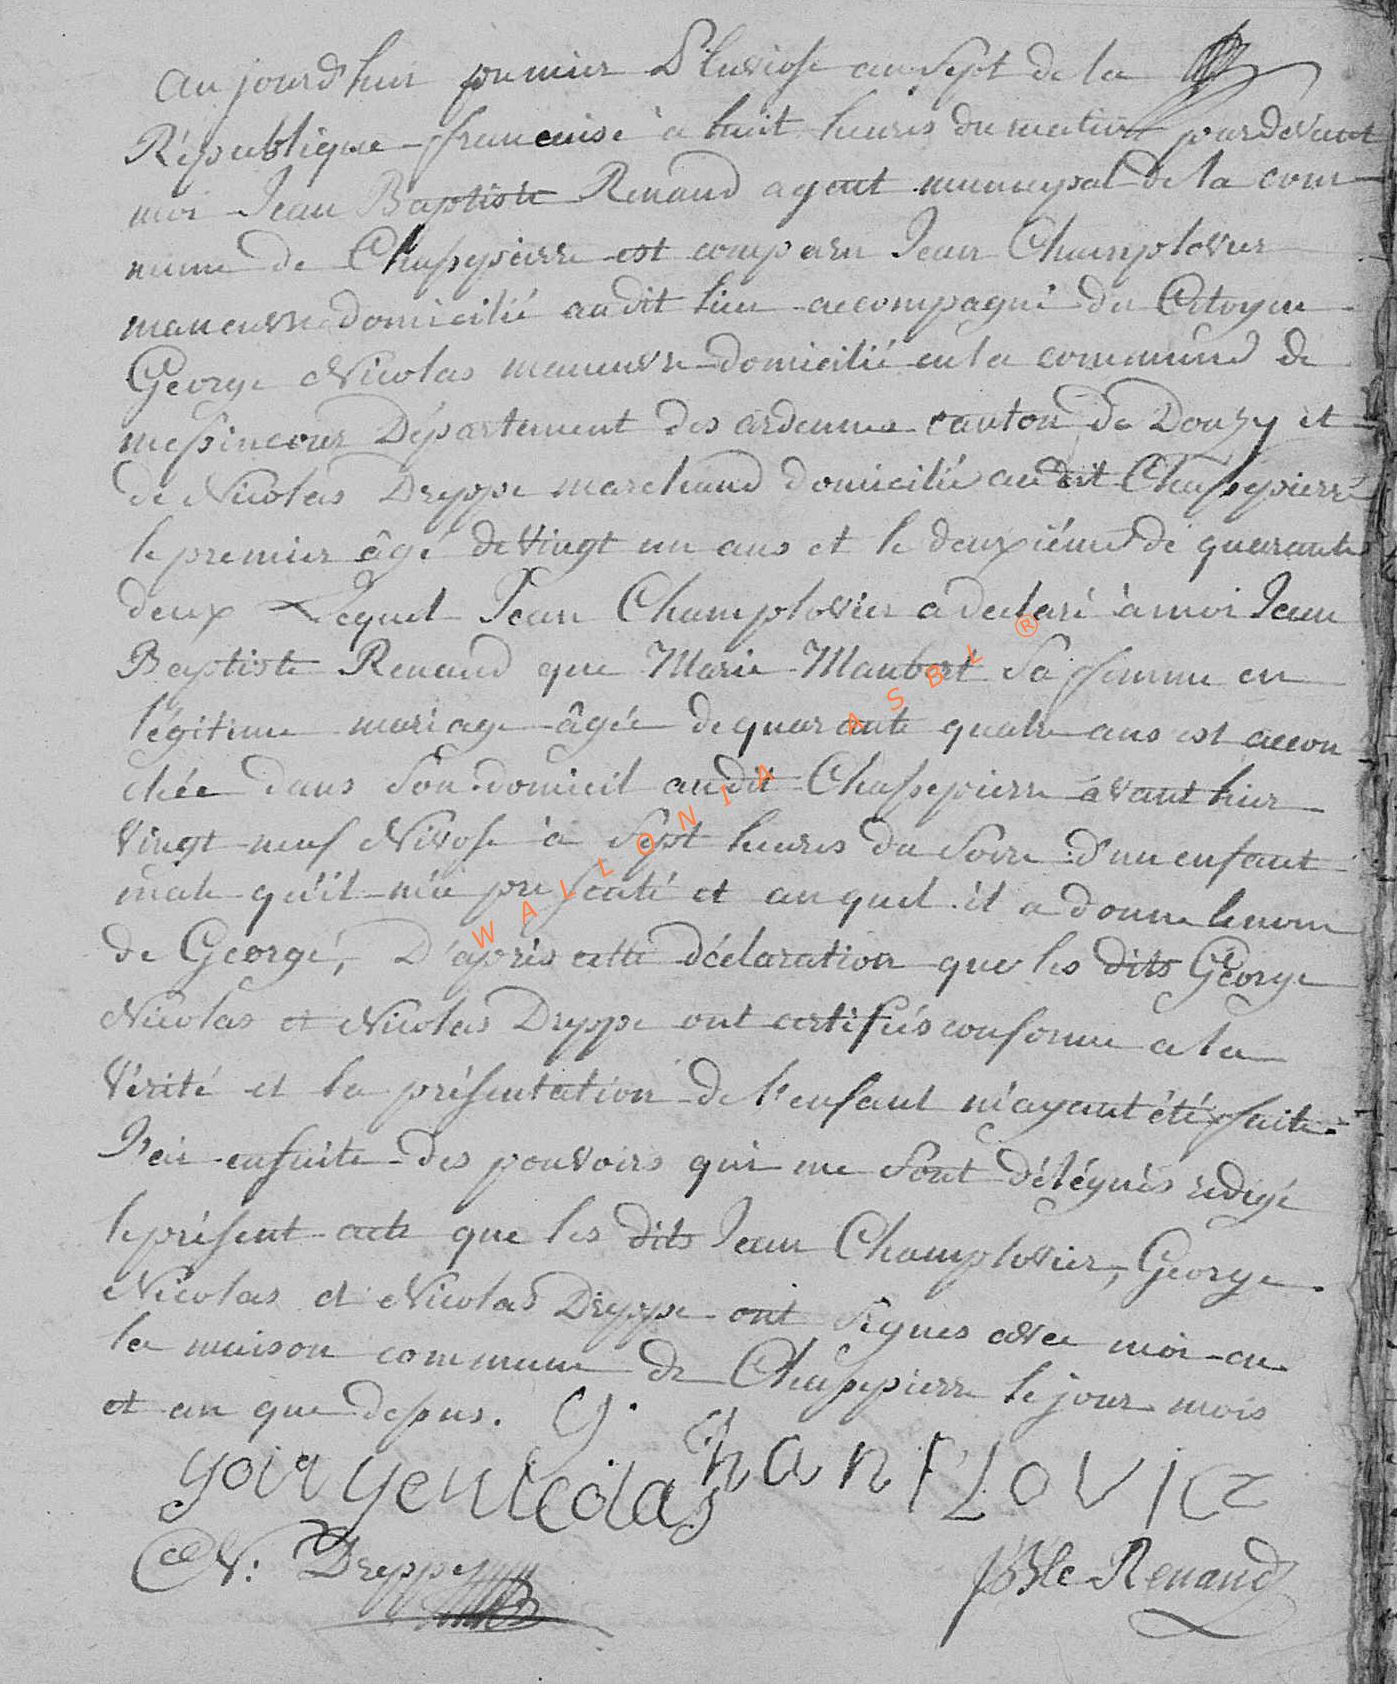 aujourd'huir premier Pluviose an sept de la
République francaise à huit heures du matin pardevant
moi Jean Baptiste Renaud agent municipal de la com
mune de Chassepierre est comparu Jean Champlovier
maneuvre domicilié audit lieu accompagné du Citoyen
George Nicolas maneuvre domicilié en la commune de
messincour Département des ardennes canton de Douzy et
de Nicolas Dreppe marchand domicilié audit Chassepierre
le premier âgé de vingt un ans et le deuxiéme de quarante
deux Lequel Jean Champlovier a declaré à moi Jean
Baptiste Renaud que Marie Maubert Sa femme en
légitime mariage âgée de quarante quatre ans est accou
chée dans Son domicil audit Chassepierre avant hier
vingt neuf Nivose à Sept heures du Soire d'un enfant
male qu'il m'a presenté et auquel il a donne le nom
de George, D'après cette déclaration que les dits George
Nicolas et Nicolas Dreppe ont certifiés conforme a la
Vérité et la présentation de l'enfant m'ayant été faite
J'ai ensuite des pouvoirs qui me Sont délégués redigé
le présent acte que les dits Jean Champlovier, George
Nicolas et Nicolas Dreppe ont Signes avec moi en
la maison commune de Chassepierre le jour mois
et an que depus. G.
goirge nicolas hanPLOVIE
N. Dreppe JBte Renaud
WALLONIA ASBL ®